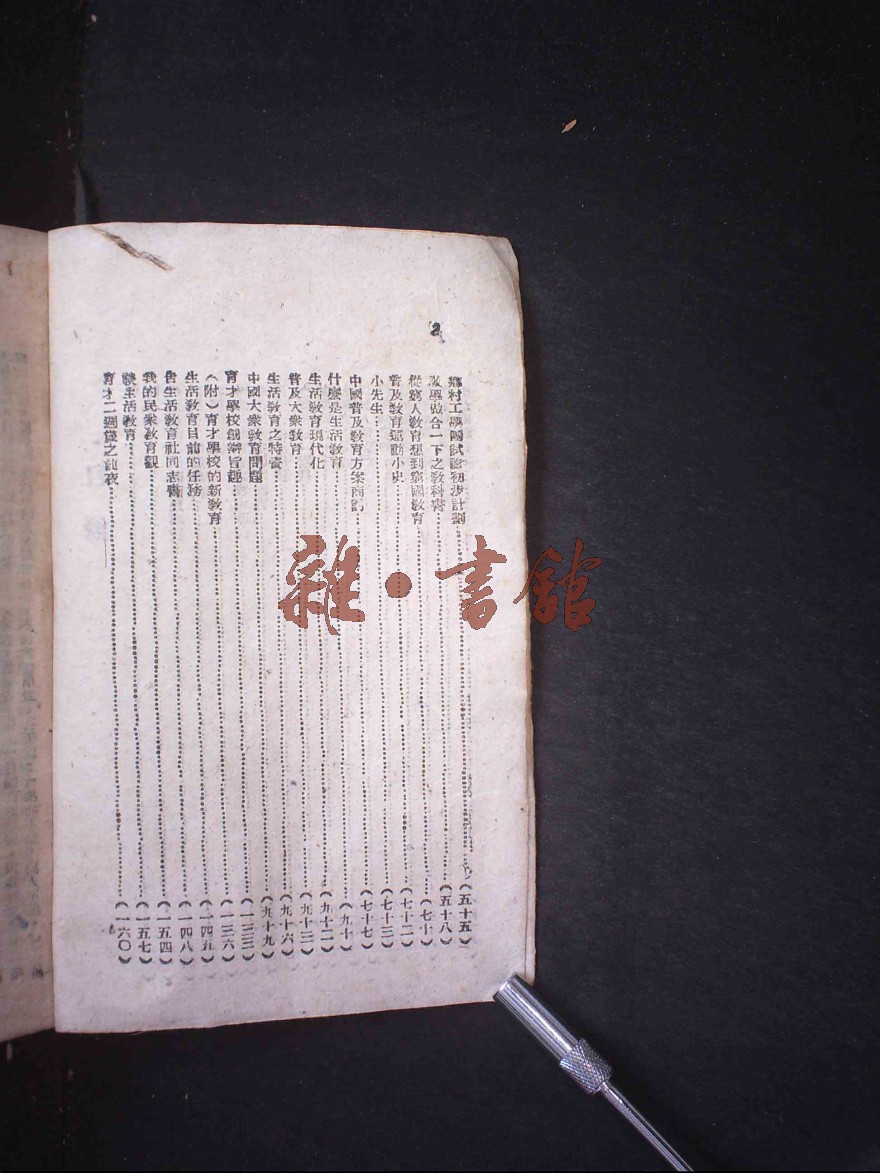 2
鄉村工學團試驗初步計劃…………(五十五)
教學做合一下之敎科書…………(五十八)
從窮人敎育想到窮國敎育…………(七十)
普及敎育運動小史…………(七十二)
小先生…………(七十三)
中國普及敎育方案商討…………(七十七)
什麼是生活敎育…………(九十)
生活敎育現代化…………(九十二)
普及大衆敎育…………(九十三)
生活敎育之特質…………(九十六)
中國大衆敎育問題…………(九十九)
育才學校創辦旨趣…………(一三三)
(附)育才學校的新敎育…………(一三六)
生活敎育目前的任務…………(一四五)
告生活敎育社同志書…………(一四八)
我的民衆敎育觀…………(一五四)
談生活敎育…………(一五七)
育才二週歲之前夜…………(一六〇)
雜·書館